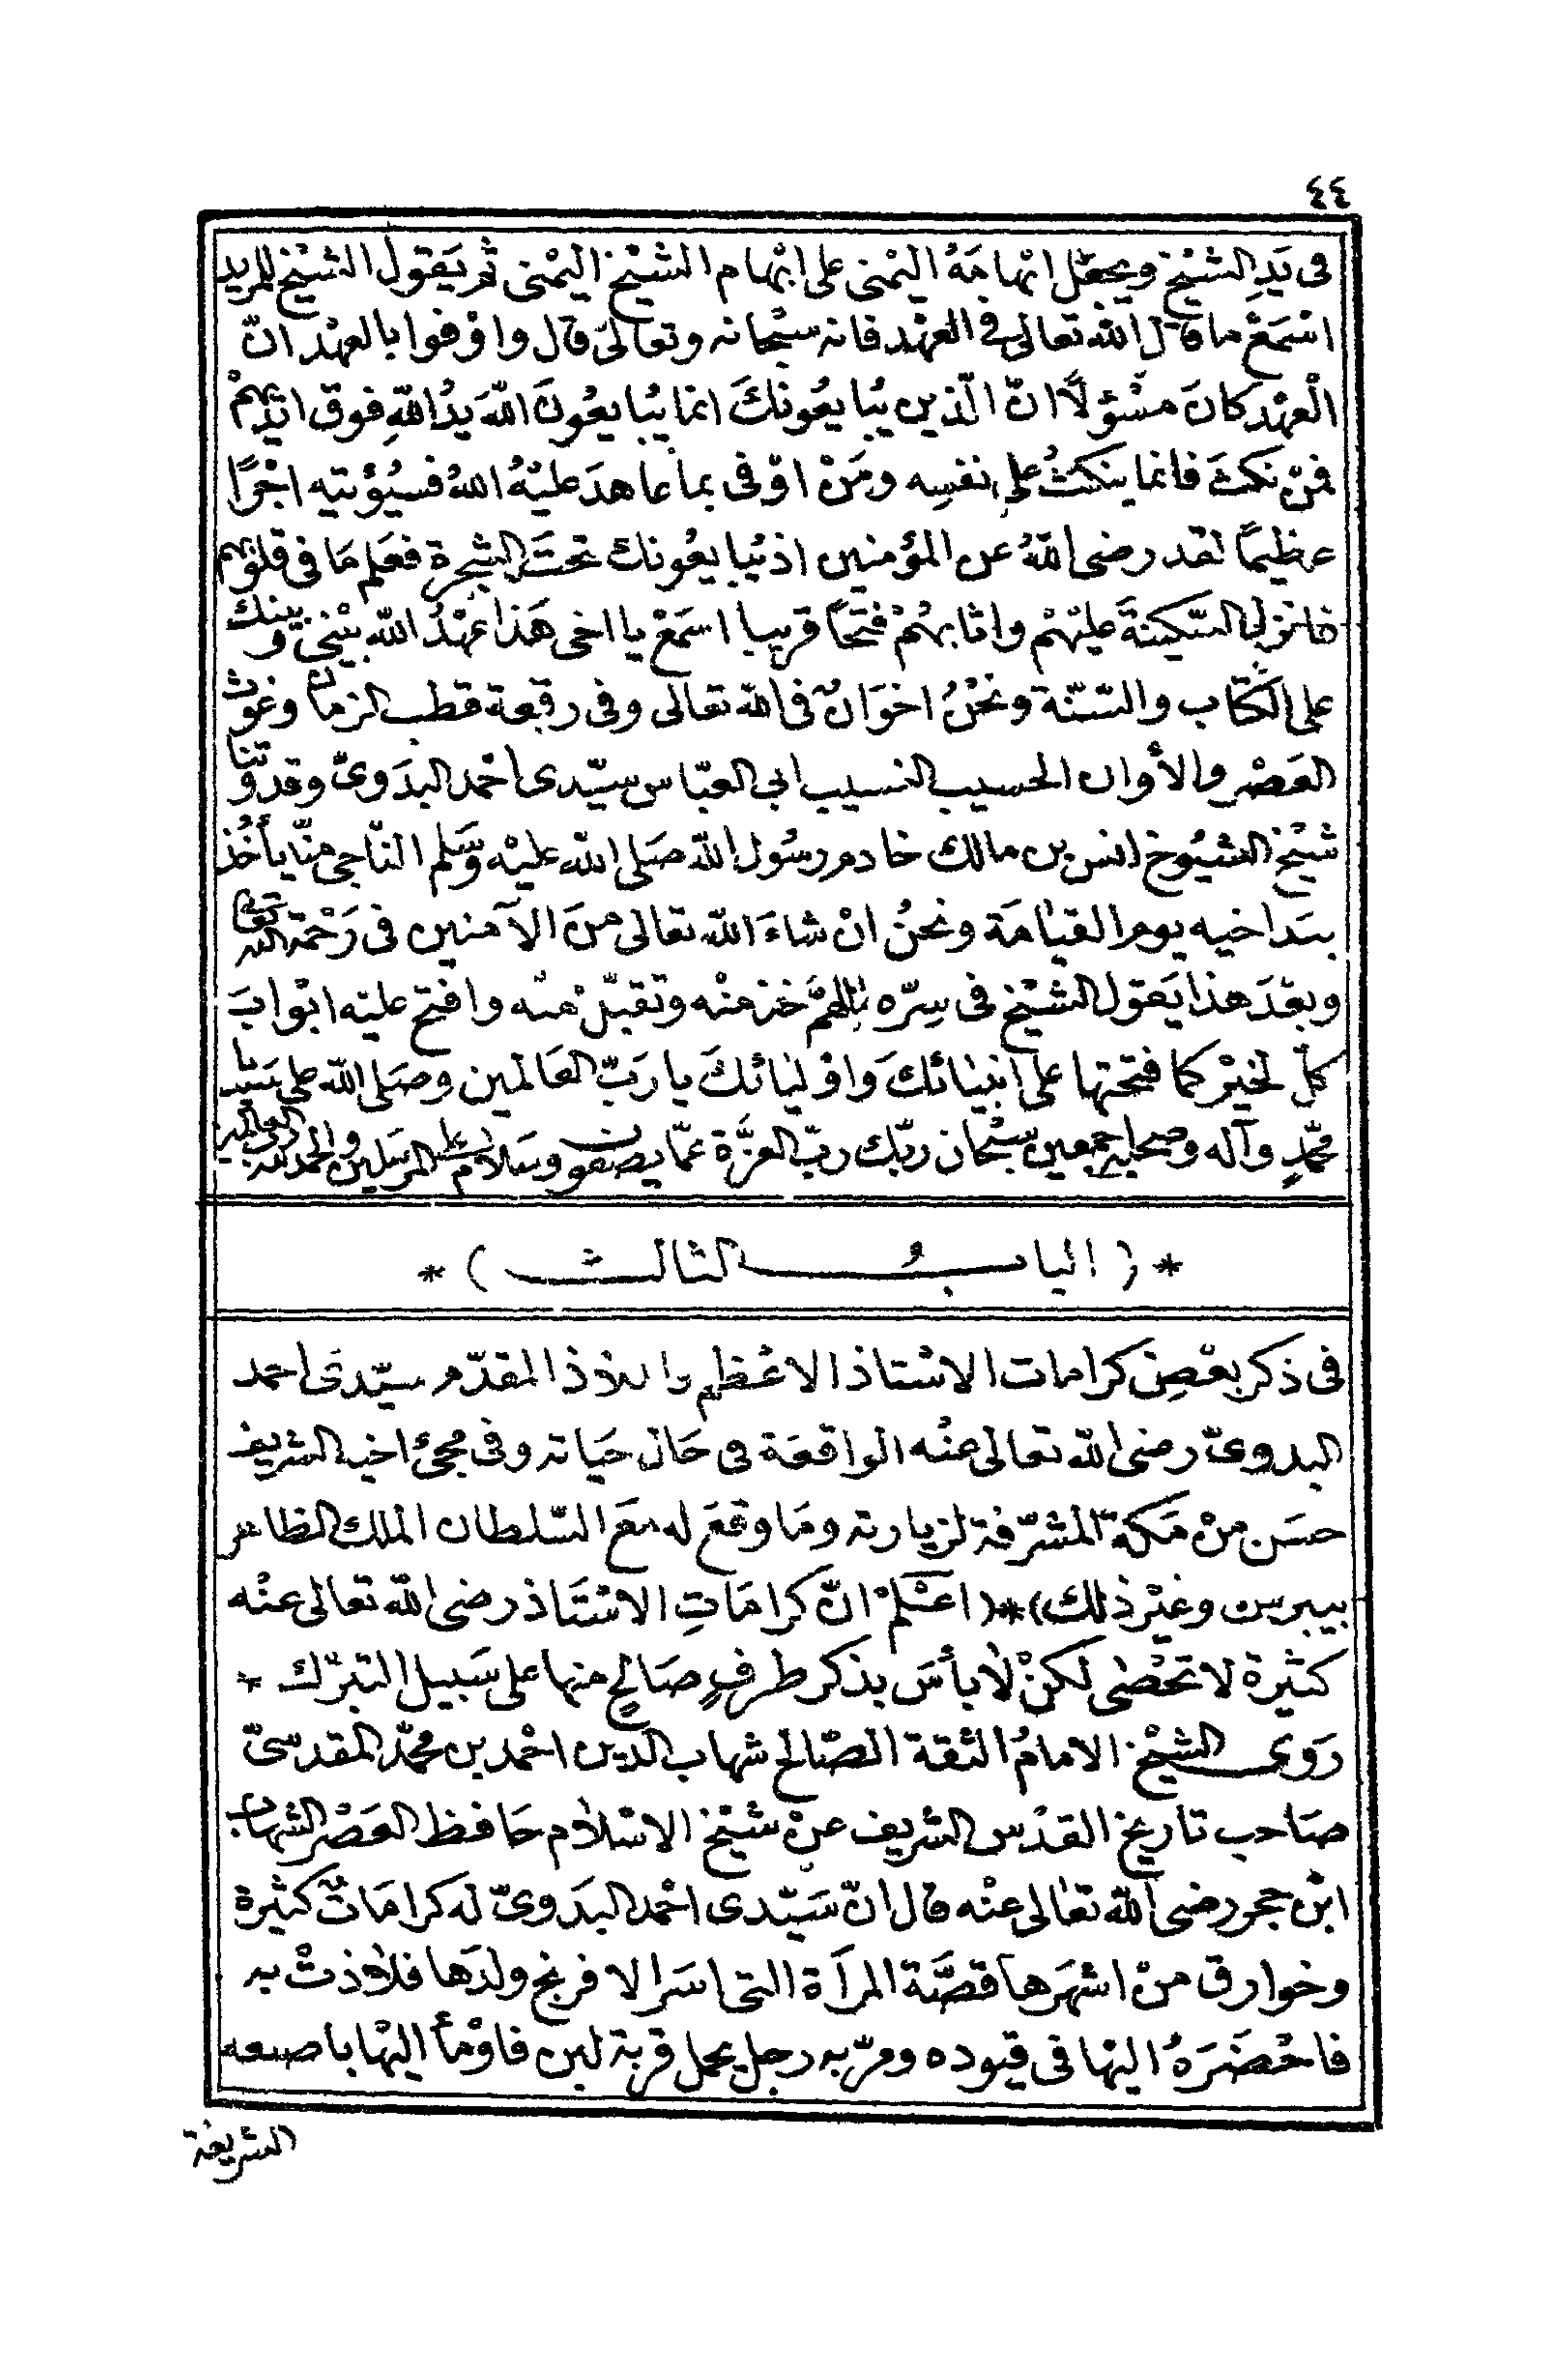 ٤٤
فى يَدِ الشيْخ ويجعَل ابْهامَهُ اليمْنى على ابْهام الشيْخ اليمْنى ثم يَقول الشيْخ للمريد
اسْمَعْ ما قال الله تعالى فى العهْد فانه سبْحانه وتعالى قال واوْفوا بالعهْد انّ
الْعهْد كانَ مسْؤلًا انّ الّذين يُبايعُونكَ انما يُبايعُونَ اللّهَ يدُ اللّهِ فوق ايْديهمْ
فمَنْ نكثَ فانما ينكثُ على نفسِه ومَنْ اوْفى بما عاهدَ عليْهُ اللهُ فسيُؤْتيه اجْرًا
عظيمًا لقد رضى اللّهُ عن المؤمنين اذ يُبايعُونك تحتَ الشجرة فعَلم مَا فى قلوْبهم
فانزل السّكينَة عليْهمْ واثابهُمْ فتحًا قريبا اسمَعْ يا اخى هَذا عهْدُ اللّه بيْنى وبينك
على الكتاب والسّنّة ونحْنُ اخوَانٌ فى اللّه تعالى وفى رقعة قطب الزمان وغوْث
العَصْر والأوان الحسيب النسيب ابى العبّاس سيّدى احْمد البدَوىّ وقدْوتنا
شيْخ الشيُوخ انس بن مالك خادم رسُول اللّه صَلى الله عليْه وَسَلم النّاجى منّا يأخُذ
بيَد اخيه يوم القيامَة ونحنُ انْ شاءَ اللّه تعالى منَ الآمنين فى رَحْمة الله تعَالى
وبعْدَ هذا يَقول الشيْخ فى سِرّه اللهمَّ خذ منْه وتقبّلْ منْه وافتح عليْه ابْوابَ
كلّ خيْر كما فتحتها على انبيَائكَ واوْليَائكَ يا رَبّ العَالمين وصَلى اللّه على سَيّدنا
محمّدٍ وآله وصحابه اجمعين سبْحان ربّك ربّ العزَّة عمّا يصفون وسَلام على المرسَلين والحمد لله ربّ العالمين
* ( البابُ الثالث ) *
فى ذكر بعْضِ كرامات الاسْتاذ الاعْظم والملاذ المقدّم سيّدى احمد
البدوىّ رضى اللّه تعالى عنْه الواقعَة فى حَال حَياته وفى مجئ اخيه الشريف
حسَن منْ مَكة المشرّفة لزيارته ومَا وقعَ له معَ السّلطان الملك الظاهر
بيبرس وغيْر ذلك)*(اعْلمْ انّ كرامَاتِ الاسْتَاذ رضى اللّه تعالى عنْه
كثيرة لا تحْصٰى لكنْ لا بأسَ بذكر طرفٍ صَالحٍ منها على سَبيل التبرّك *
رَوى الشيْخ الامامُ الثقة الصّالح شهاب الدين احْمد بن محمّد المقدسىّ
صَاحب تاريخ القدْس الشريف عنْ شيْخ الاسْلام حَافظ العَصْر الشهاب
ابْن حجر رضى اللّه تعَالى عنْه قال انّ سَيّدى احْمد البدَوىّ له كرامَاتٌ كثيرة
وخوارق منْ اشهَرها قصَّة المرأة التى اسَر الافرنج ولدَها فلاذتْ به
فاحْضَرَهُ اليْها فى قيوده ومرّ به رجل يحمل قربة لبن فاوْمأ اليْها باصبعه
الشريفة